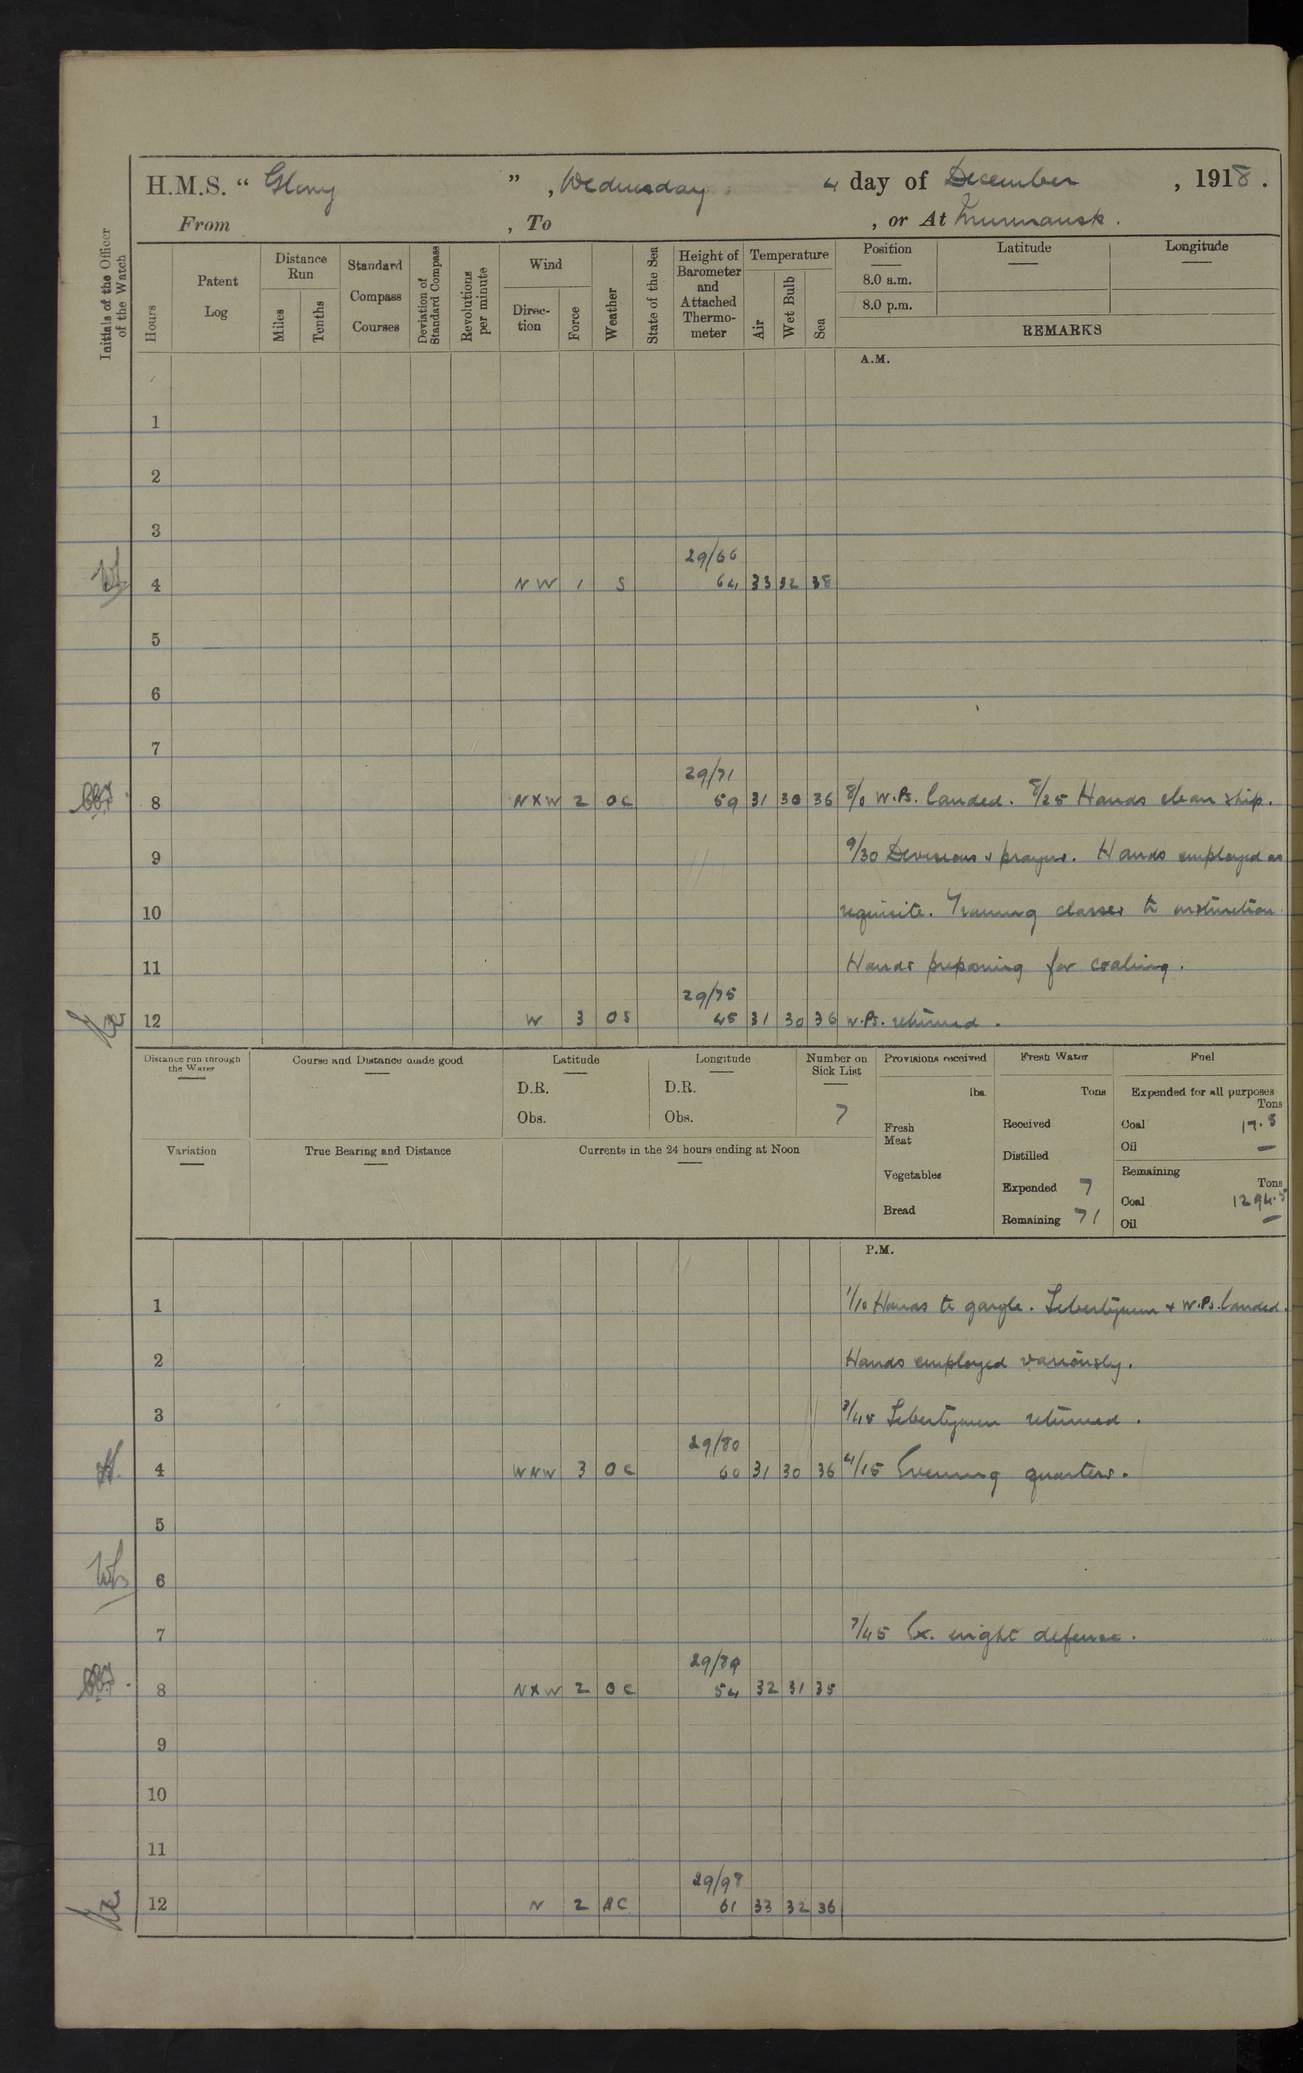 H.M.S. “ Glory ” , Wednesday 4 day of December , 1918 .
From , To , or At Murmansk .
Initials of the Officer of the Watch
Hours
Patent Log
Distance Run
Miles
Tenths
Standard Compass Courses
Deviation of Standard Compass
Revolutions per minute
Wind
Direction
Force
Weather
State of the Sea
Height of Barometer and Attached Thermometer
Temperature
Air
Wet Bulb
Sea
Position Latitude Longitude
8.0 a.m.
8.0 p.m.
REMARKS
A.M.
1
2
3
29/66
4 NW 1 S 64 33 32 38
5
6
7
29/71
8 NXW 2 OC 59 31 30 36 8/0 W.Ps. landed. 8/25 Hands clean ship.
9 9/30 Divisions & prayers. Hands employed as
10 requisite. Training classes to instruction
11 Hands preparing for coaling.
29/75
12 W 3 OS 45 31 30 36 W.Ps. returned .
Distance run through the Water
Course and Distance made good
Latitude
D.R.
Obs.
Longitude
D.R.
Obs.
Number on Sick List
7
Provisions received
lbs.
Fresh Meat
Vegetables
Bread
Fresh Water
Tons
Received
Distilled
Expended 7
Remaining 71
Fuel
Expended for all purposes
Tons
Coal 17.5
Oil —
Remaining
Tons
Coal 1294.5
Oil —
Variation
True Bearing and Distance
Currents in the 24 hours ending at Noon
P.M.
1 1/10 Hands to gargle. Libertymen & W.Ps. landed.
2 Hands employed variously.
3 3/45 Libertymen returned .
29/80
4 WNW 3 OC 60 31 30 36 4/15 Evening quarters.
5
6
7 7/45 Ex. night defence.
29/89
8 NXW 2 OC 54 32 31 35
9
10
11
29/98
12 N 2 BC 61 33 32 36